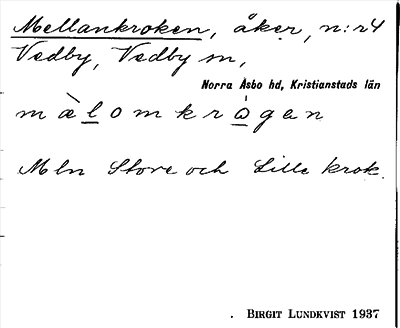 Mellankroken, åker, n:r 4
Vedby, Vedby sn,
Norra Åsbo hd, Kristianstads län
mæ̀lomkrågen
Mln Store och Lille krok.
. BIRGIT LUNDKVIST 1937